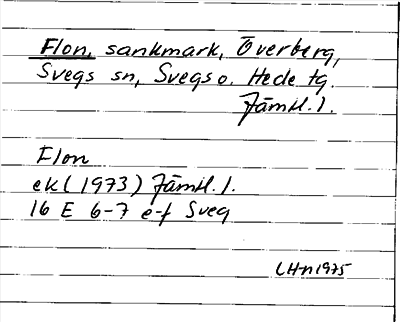 Flon, sankmark, Överberg,
Svegs sn, Svegs o. Hede tg.
Jämtl. l.
Flon
ek (1973) Jämtl. l.
16 E 6-7 e-f Sveg
LHn 1975